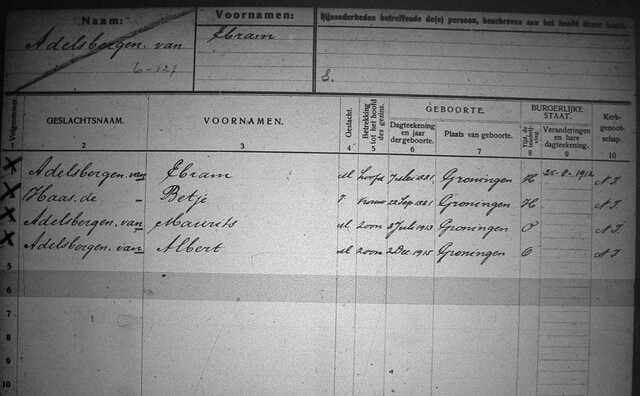 Naam: Voornamen: Bijzonderheden betreffende de(n) persoon, beschreven aan het hoofd dezer kaart.
Adelsbergen. van Ebram
6-127
S.
GESLACHTSNAAM. VOORNAMEN. Geslacht. Betrekking tot het hoofd des gezins. GEBOORTE. Dagteekening en jaar der geboorte. Plaats van geboorte. BURGERLIJKE STAAT. Veranderingen en hare dagteekening. Kerkgenootschap.
2 3 4 5 6 7 8 9 10
Adelsbergen. van Ebram M. hoofd 1881. Groningen H 25-8-1912 N.I.
Haas. de - Betje V. vrouw 22 Sep 1881 Groningen H N.I.
Adelsbergen. van Maurits M. zoon 8 Juli 1913 Groningen O N.I.
Adelsbergen. van Albert M. zoon 2 Dec. 1915 Groningen O N.I.
5
6
7
8
9
10